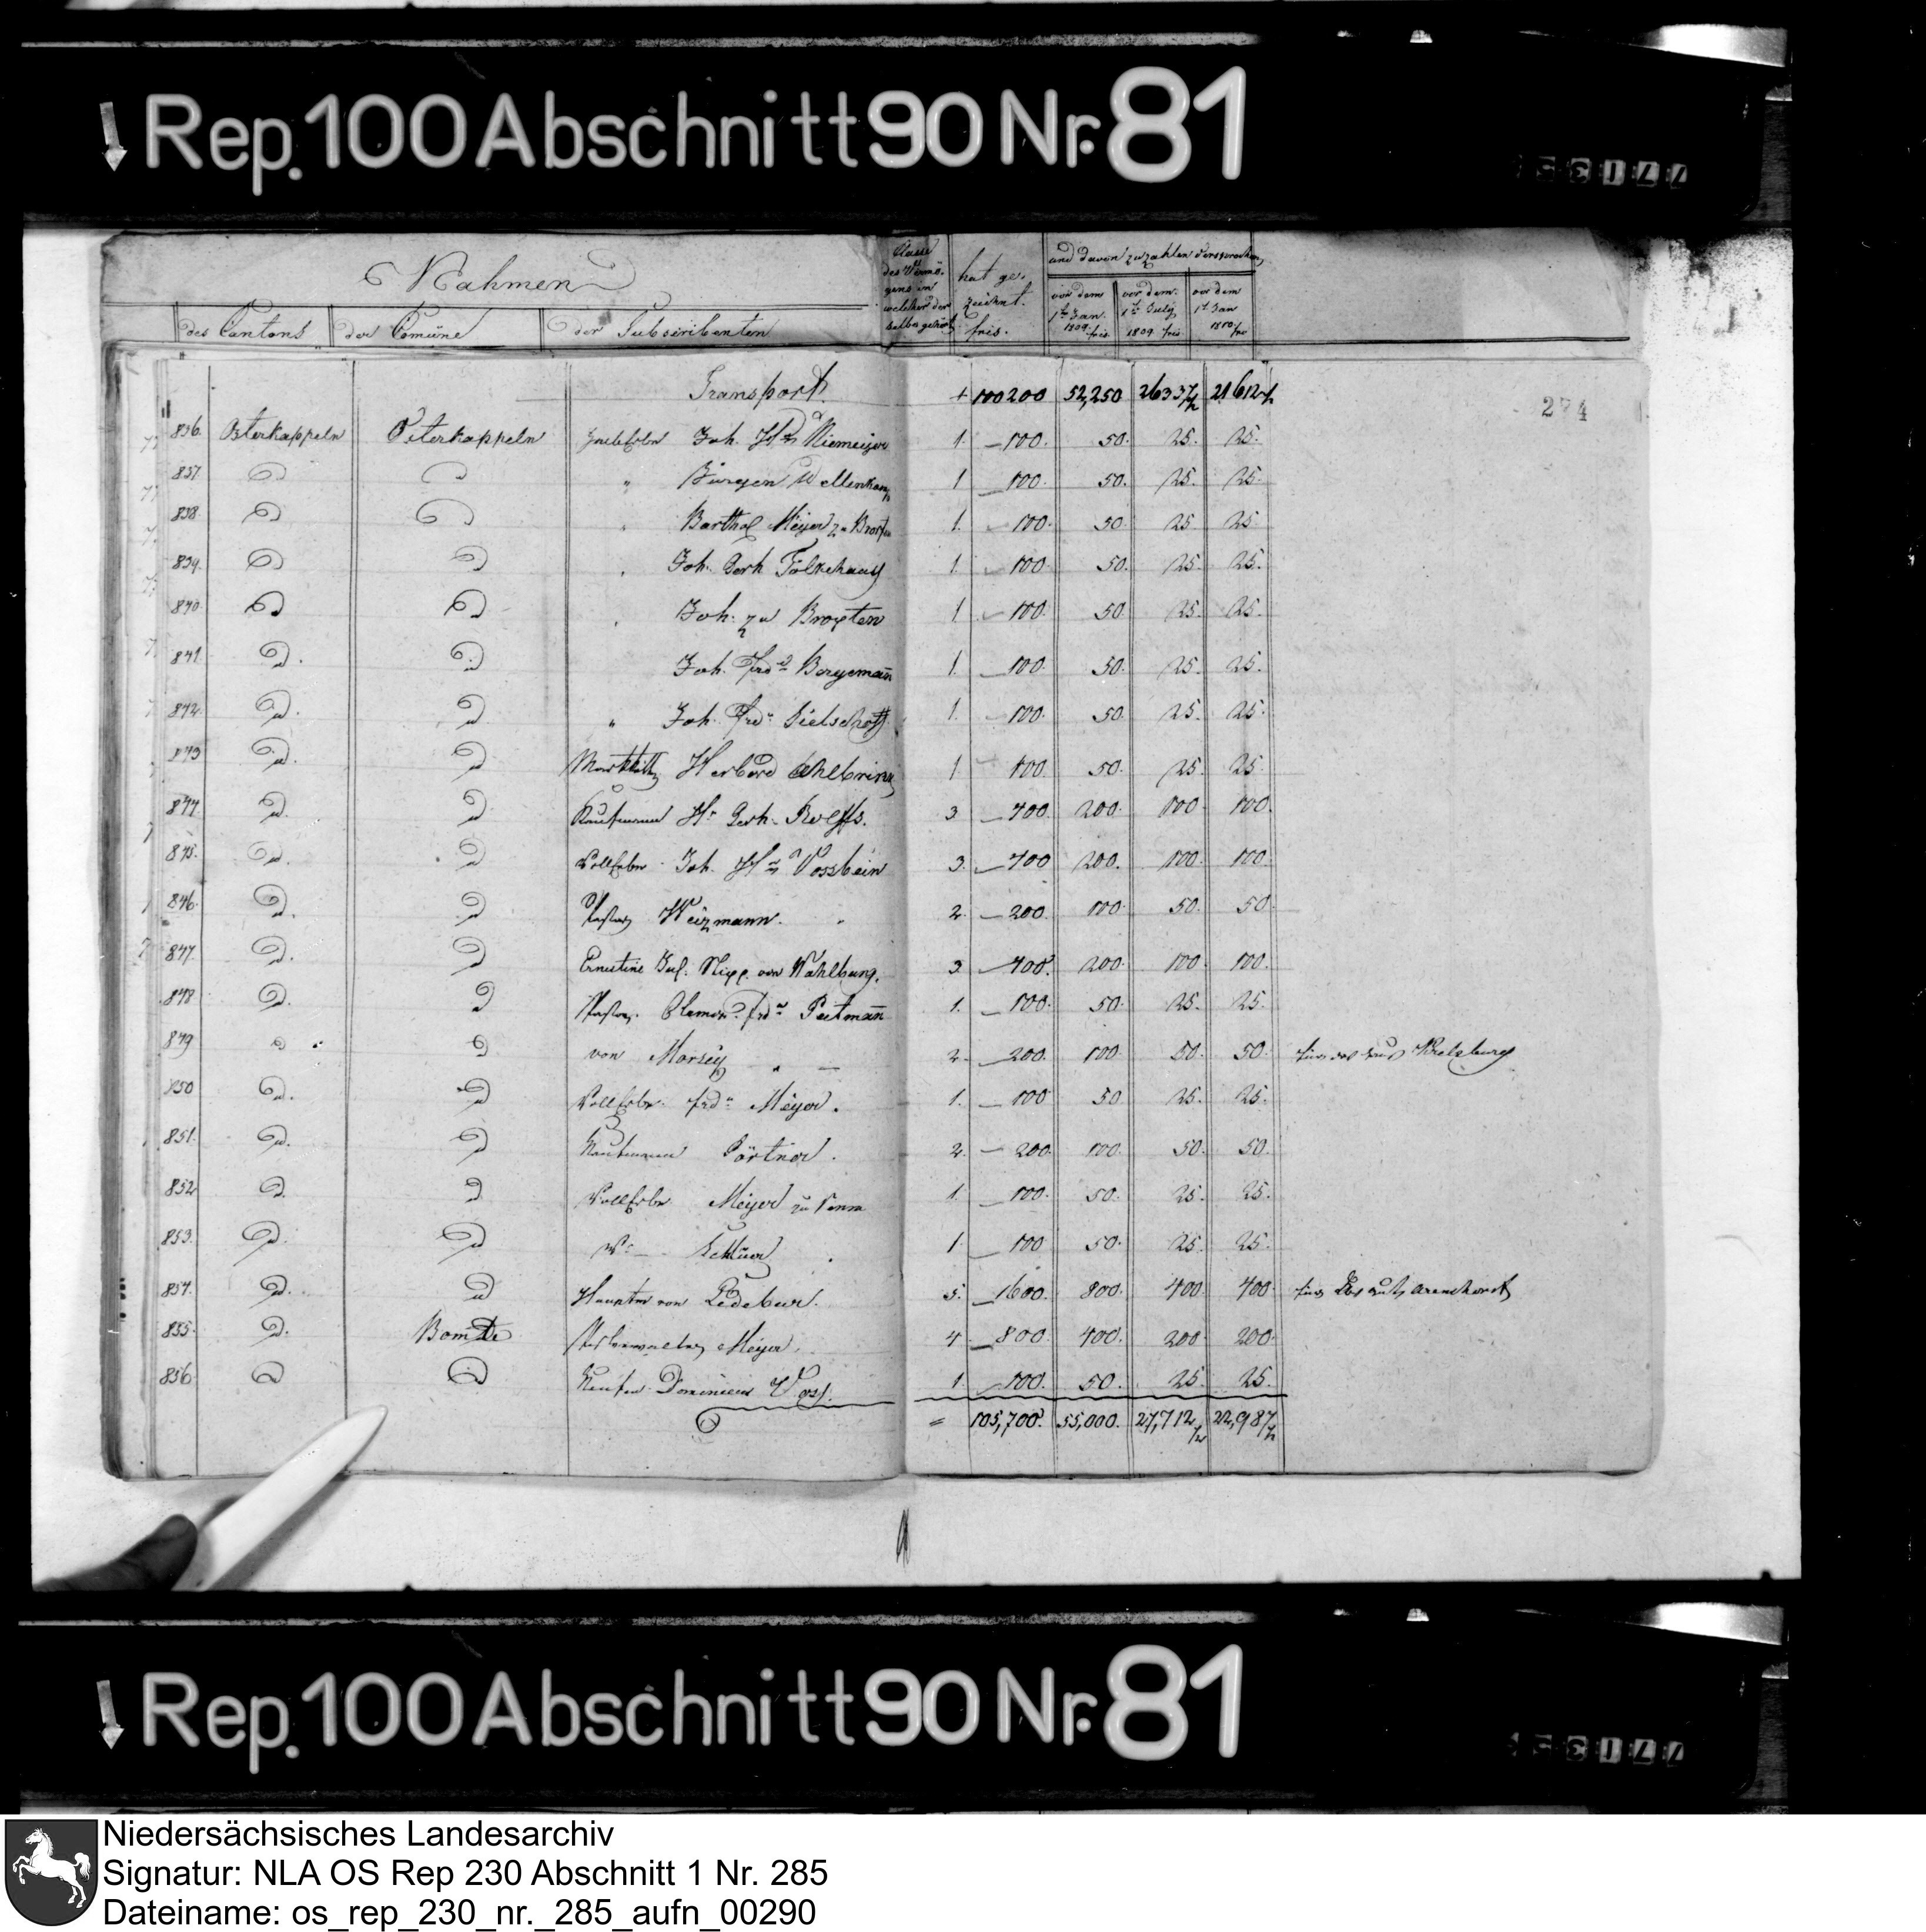 Rep. 100 Abschnitt 90 Nr. 81
Nahmen
des Cantons der Comüne der Subscribenten
Classe des Vermögens in welcher derselbe gehört
hat gezeichnet. frcs.
und davon zu zahlen versprochen
vor dem 1t Jan. 1809. frcs. vor dem 1t July 1809 frcs vor dem 1t Jan 1810 frc
Transport. 100200 52,250 26337½ 21612½
274
836. Osterkappeln Osterkappeln Joh. Hn Niemeyer 1. 100. 50. 25. 25.
837. D D " Jürgen Wellenkamp 1 100. 50. 25. 25.
838. D D " Barthol Meyer zu Broxten 1. 100. 50 25 25
839. D D " Joh. Gerh Tölkehaus 1. 100. 50. 25. 25.
840. D D " Joh. zu Broxten 1 100. 50 25 25.
841. D. D Joh. Frd Borgemañ 1. 100. 50. 25. 25.
842. D. D " Joh. Frd Gielschott 1. 100. 50. 25. 25.
843 D. D Herbord Ahlbrink 1 100. 50. 25 25.
844. D. D Kaufmann Hr Gerh. Rolffs. 3 400. 200. 100. 100.
845. D. D VollErbe Joh. Hn Vossbein 3. 400 200. 100. 100.
846. D. D Pastor Weizmann. 2. 200. 100. 50. 50.
847. D. D Ernestine Jul. von Wahlburg. 3 400. 200. 100. 100.
848. D. D Pastor. Clamor Frd Pertmañ 1. 100. 50. 25. 25.
849 D D von Morsey 2. 200. 100. 50. 50. für das Haus Krebsburg
850 D. D VollErbe. Frd Meyer. 1. 100 50 25. 25.
851. D. D Kaufmann Pörtner. 2. 200. 100. 50. 50.
852 D. D VollErbe Meyer zu Venne 1. 100. 50. 25. 25.
853. D. D We Schlüer 1 100 50. 25. 25.
854. D. D Hauptm von Ledebur. 5. 1600. 800. 400 400 für das Guth Arenshorst
855. D. Bomte Meyer. 4 800. 400. 200 200.
856. D D Kaufm Dominicus Voss. 1. 100. 50. 25. 25.
= 105,700. 55,000. 27,712½ 22,987½
Rep. 100 Abschnitt 90 Nr. 81
Niedersächsisches Landesarchiv
Signatur: NLA OS Rep 230 Abschnitt 1 Nr. 285
Dateiname: os_rep_230_nr._285_aufn_00290